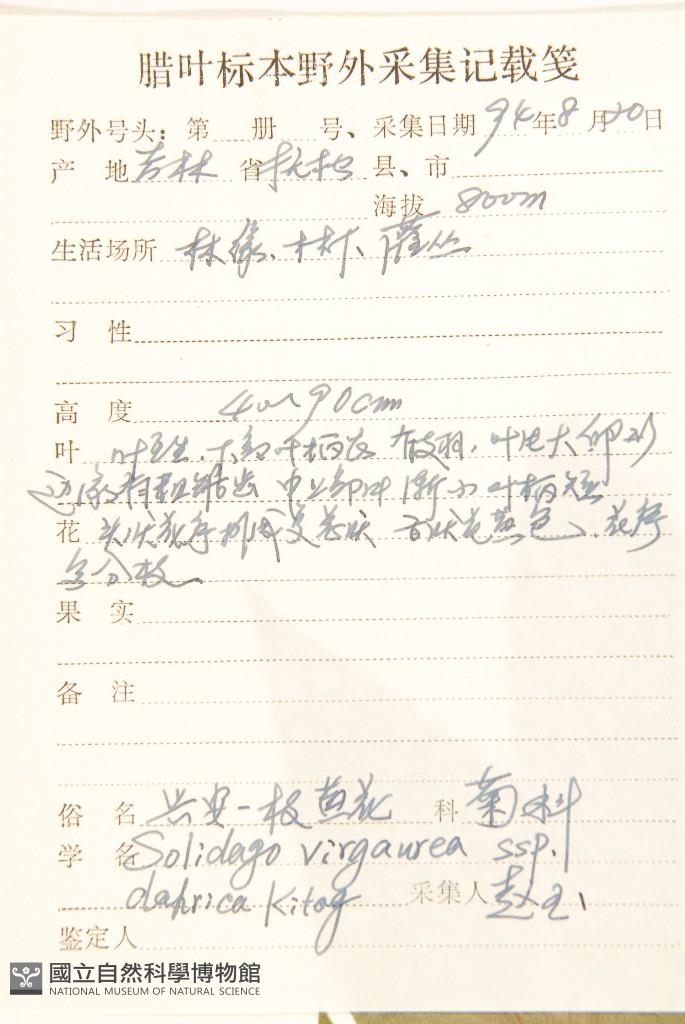 腊叶标本野外采集记载笺
野外号头：第 册 号、采集日期 94年8月20日
产 地 吉林 省 抚松 县、市
海拔 800m
生活场所 林缘、林下、灌丛
习 性
高 度 40~90cm
叶 叶互生，下部叶柄长 有皮翅，叶片大 卵形
边缘有粗锯齿 中上部叶渐小叶柄短
花 头状花序 舌状花黄色、花序
多分枝
果 实
备 注
俗 名 兴安一枝黄花 科 菊科
学 名 Solidago virgaurea ssp.
dahrica Kitag 采集人 赵
鉴定人
國立自然科學博物館
NATIONAL MUSEUM OF NATURAL SCIENCE